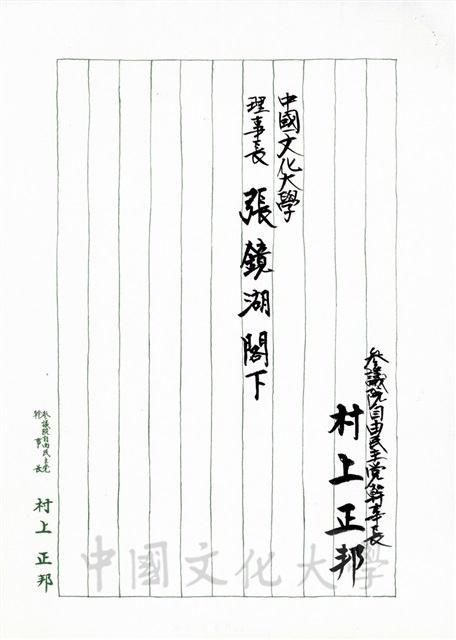 参議院自由民主党幹事長
村上正邦
中國文化大學
理事長 張鏡湖閣下
参議院自由民主党
幹事長
村上正邦
中國文化大學